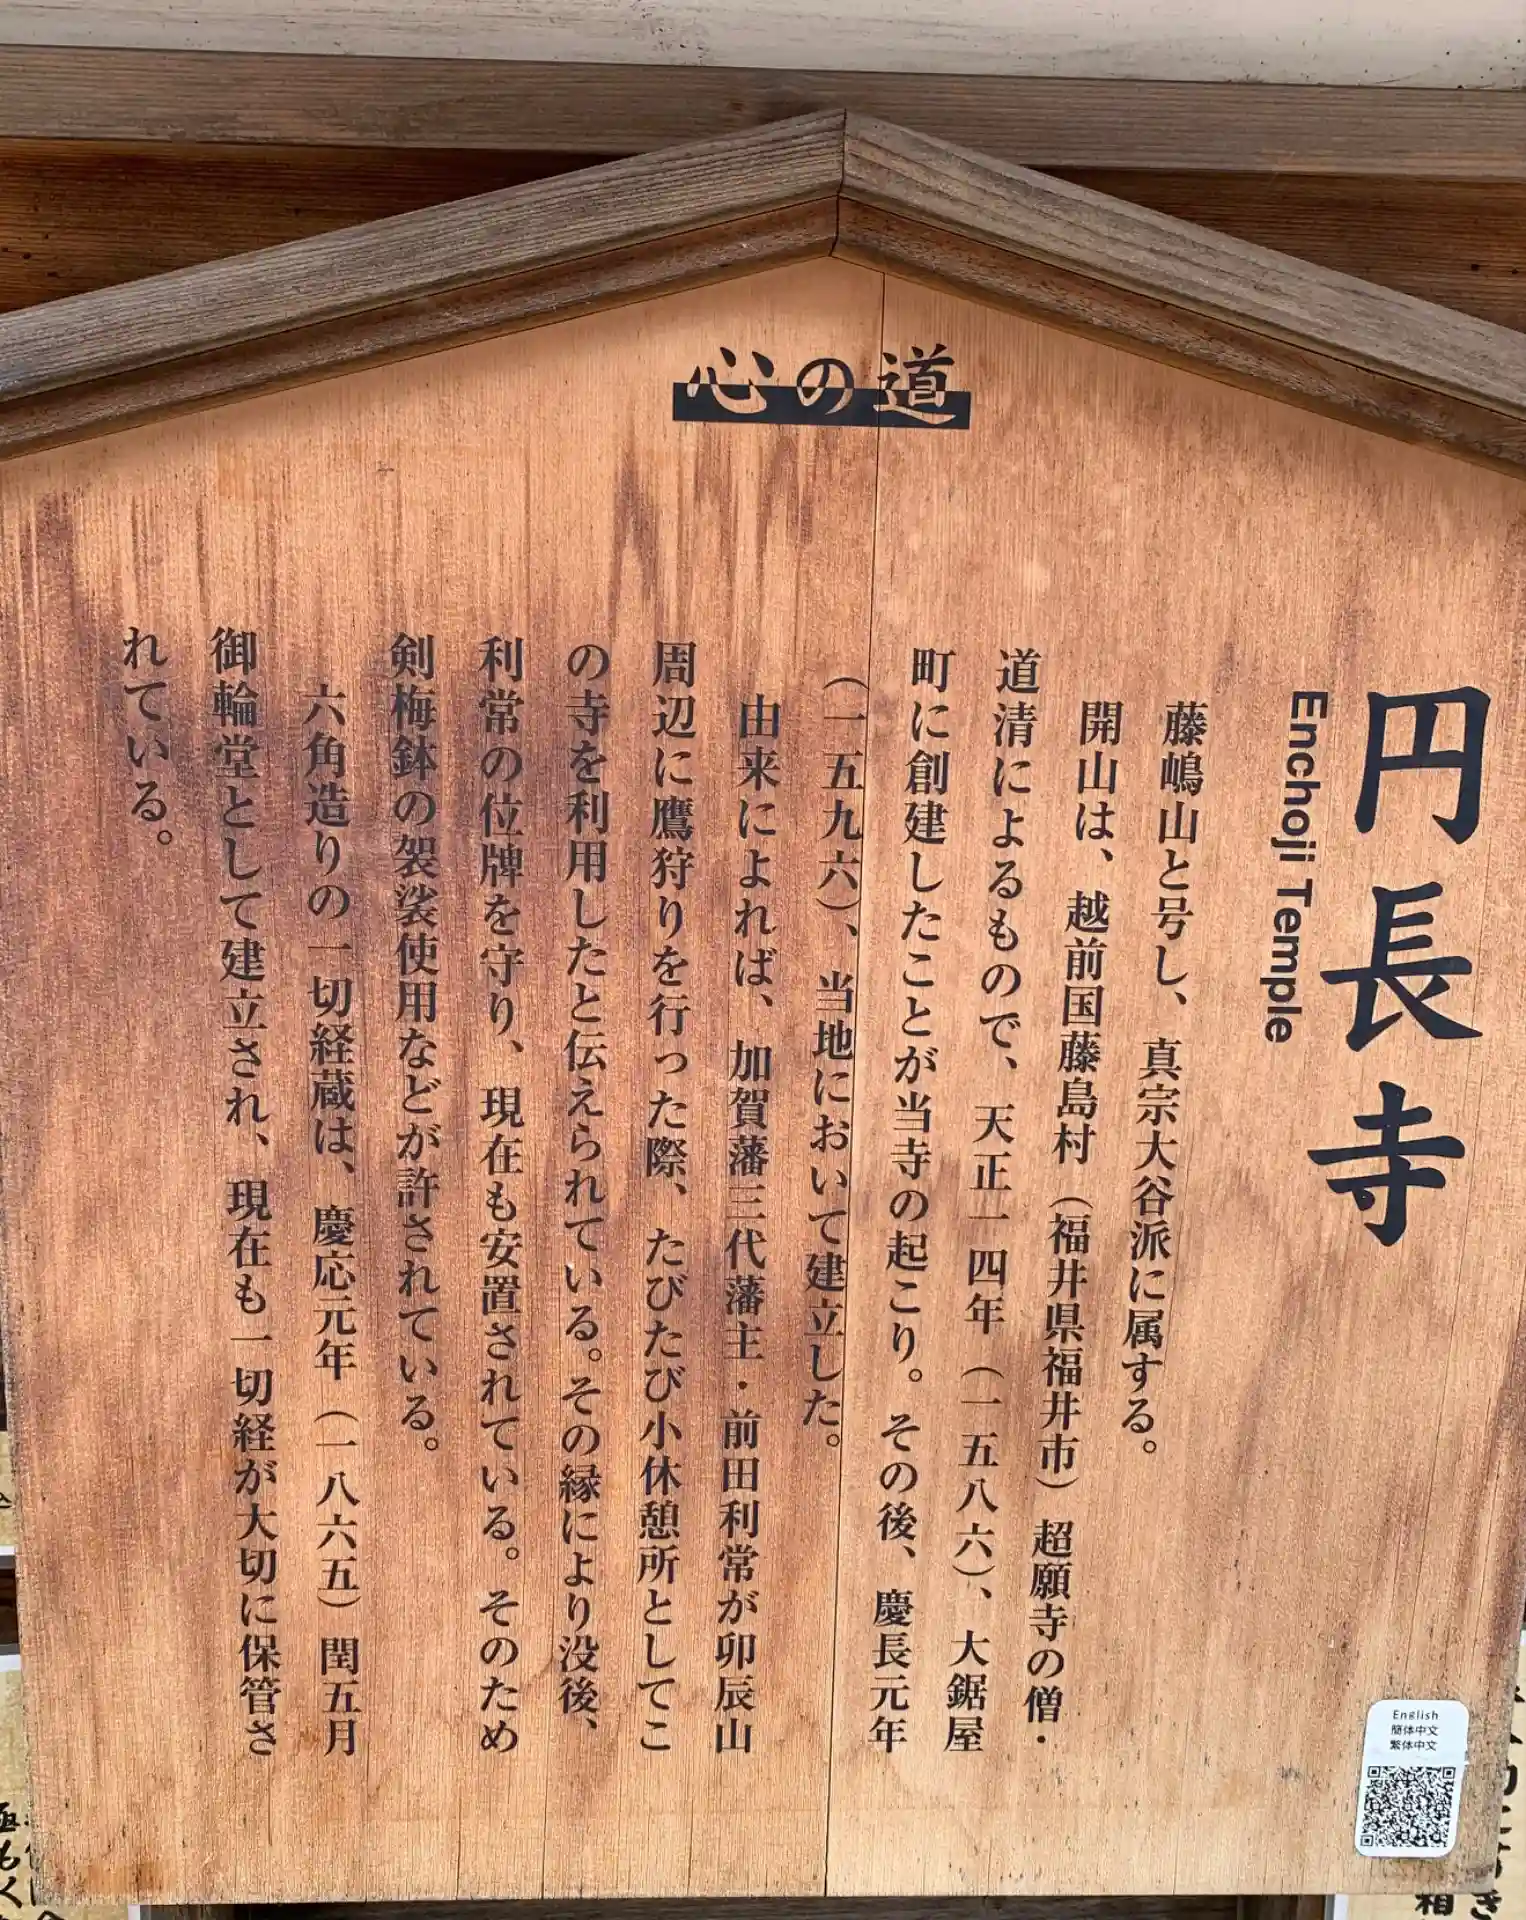 心の道
円長寺
Enchoji Temple
藤嶋山と号し、真宗大谷派に属する。
開山は、越前国藤島村（福井県福井市）超願寺の僧・
道清によるもので、天正一四年（一五八六）、大鋸屋
町に創建したことが当寺の起こり。その後、慶長元年
（一五九六）、当地において建立した。
由来によれば、加賀藩三代藩主・前田利常が卯辰山
周辺に鷹狩りを行った際、たびたび小休憩所としてこ
の寺を利用したと伝えられている。その縁により没後、
利常の位牌を守り、現在も安置されている。そのため
剣梅鉢の袈裟使用などが許されている。
六角造りの一切経蔵は、慶応元年（一八六五）閏五月
御輪堂として建立され、現在も一切経が大切に保管さ
れている。
English
簡体中文
繁体中文